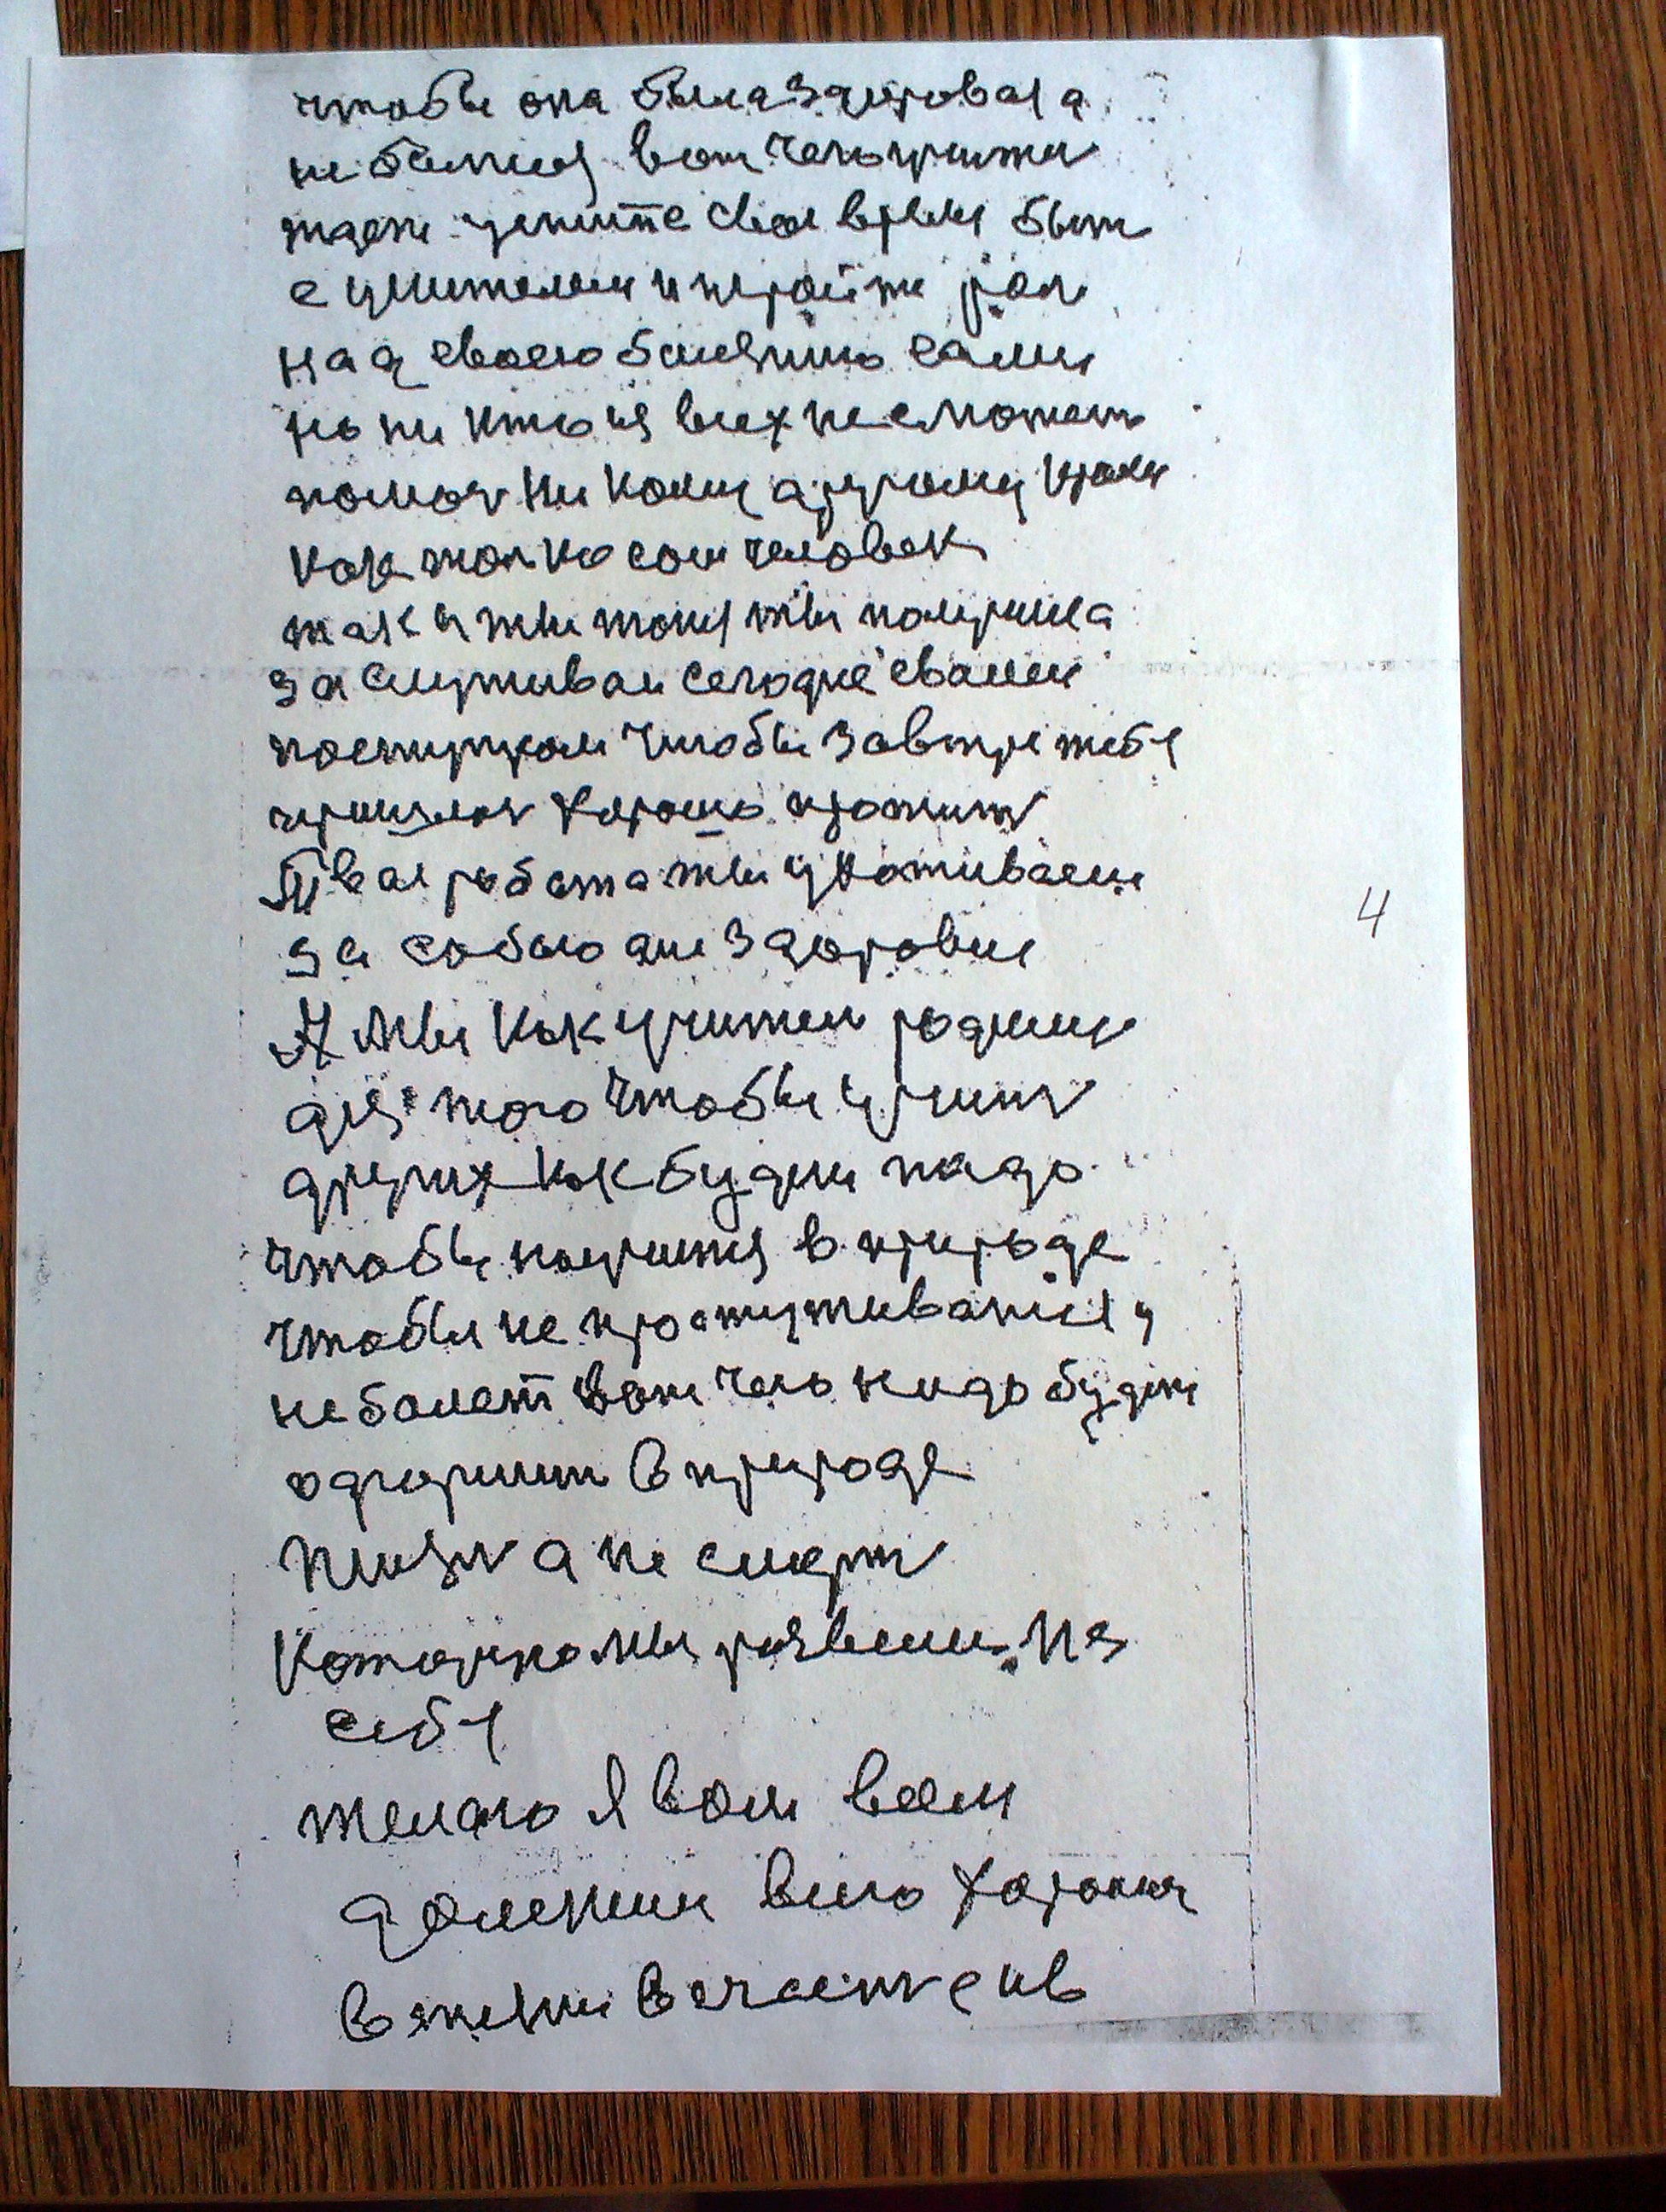 чтобы она была здоровая а
не болная вот чего учител
ждет цените свое время быт
с учителем и играйте рол
над своею болезнию сами
но ни кто из вас не сможет
помоч ни кому другому кроме
как толко сам человек
так и ты тоня ты получила
заслуживай сегодне своими
поступкам чтобы завтре тебя
пришлоч хорошо прожит
Твая работа ты ухаживаеш
за собою для здоровие
А мы как учители родилис
для того чтобы учит
других как будем надо
чтобы научится в природе
чтобы не простуживатся и
не болет вот чего надо будет
одерживат в природе
жизн а не смерт
которую мы развели на
себя
желаю я вам всем
домашним всего хорошего
в жизни счасте
4